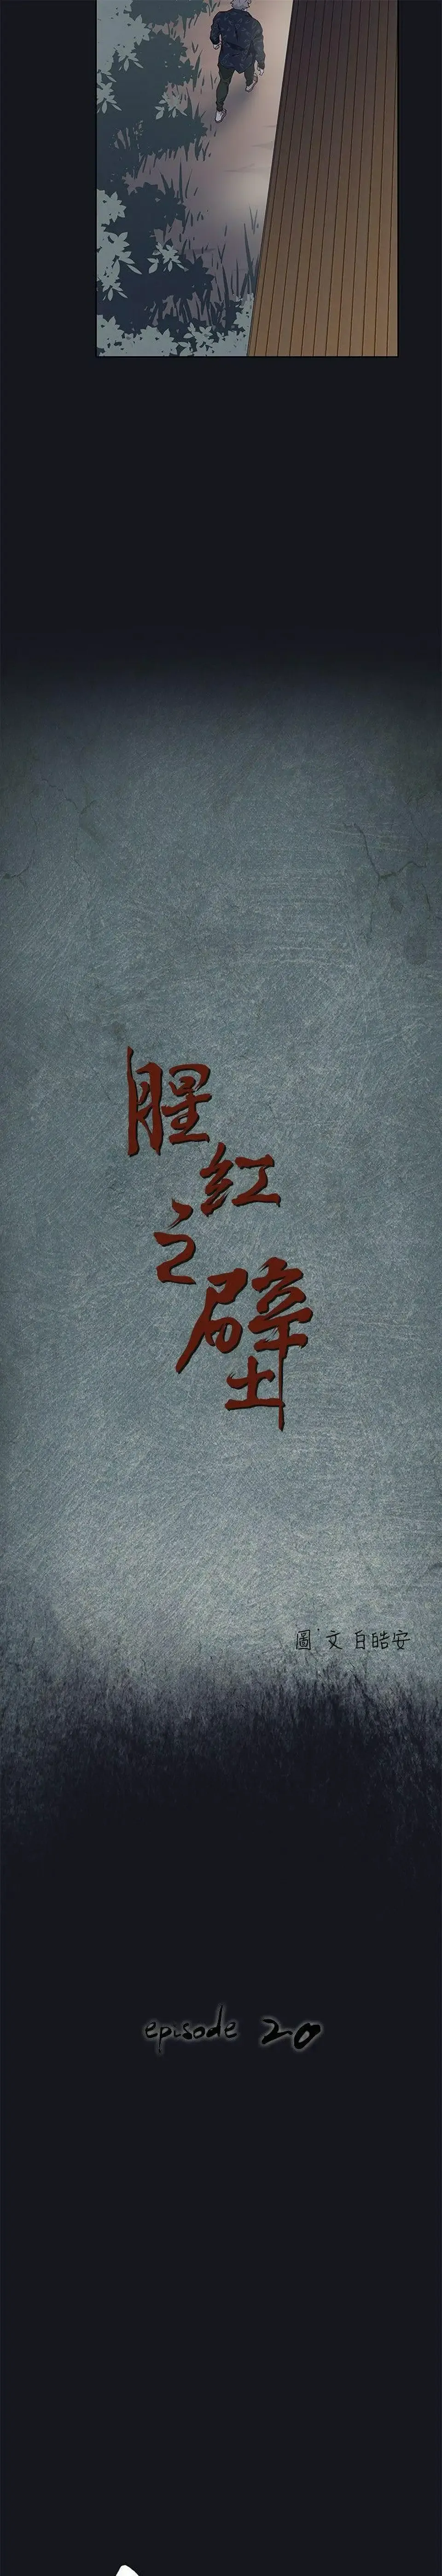 腥紅之壁
圖、文 白皓安
episode 20